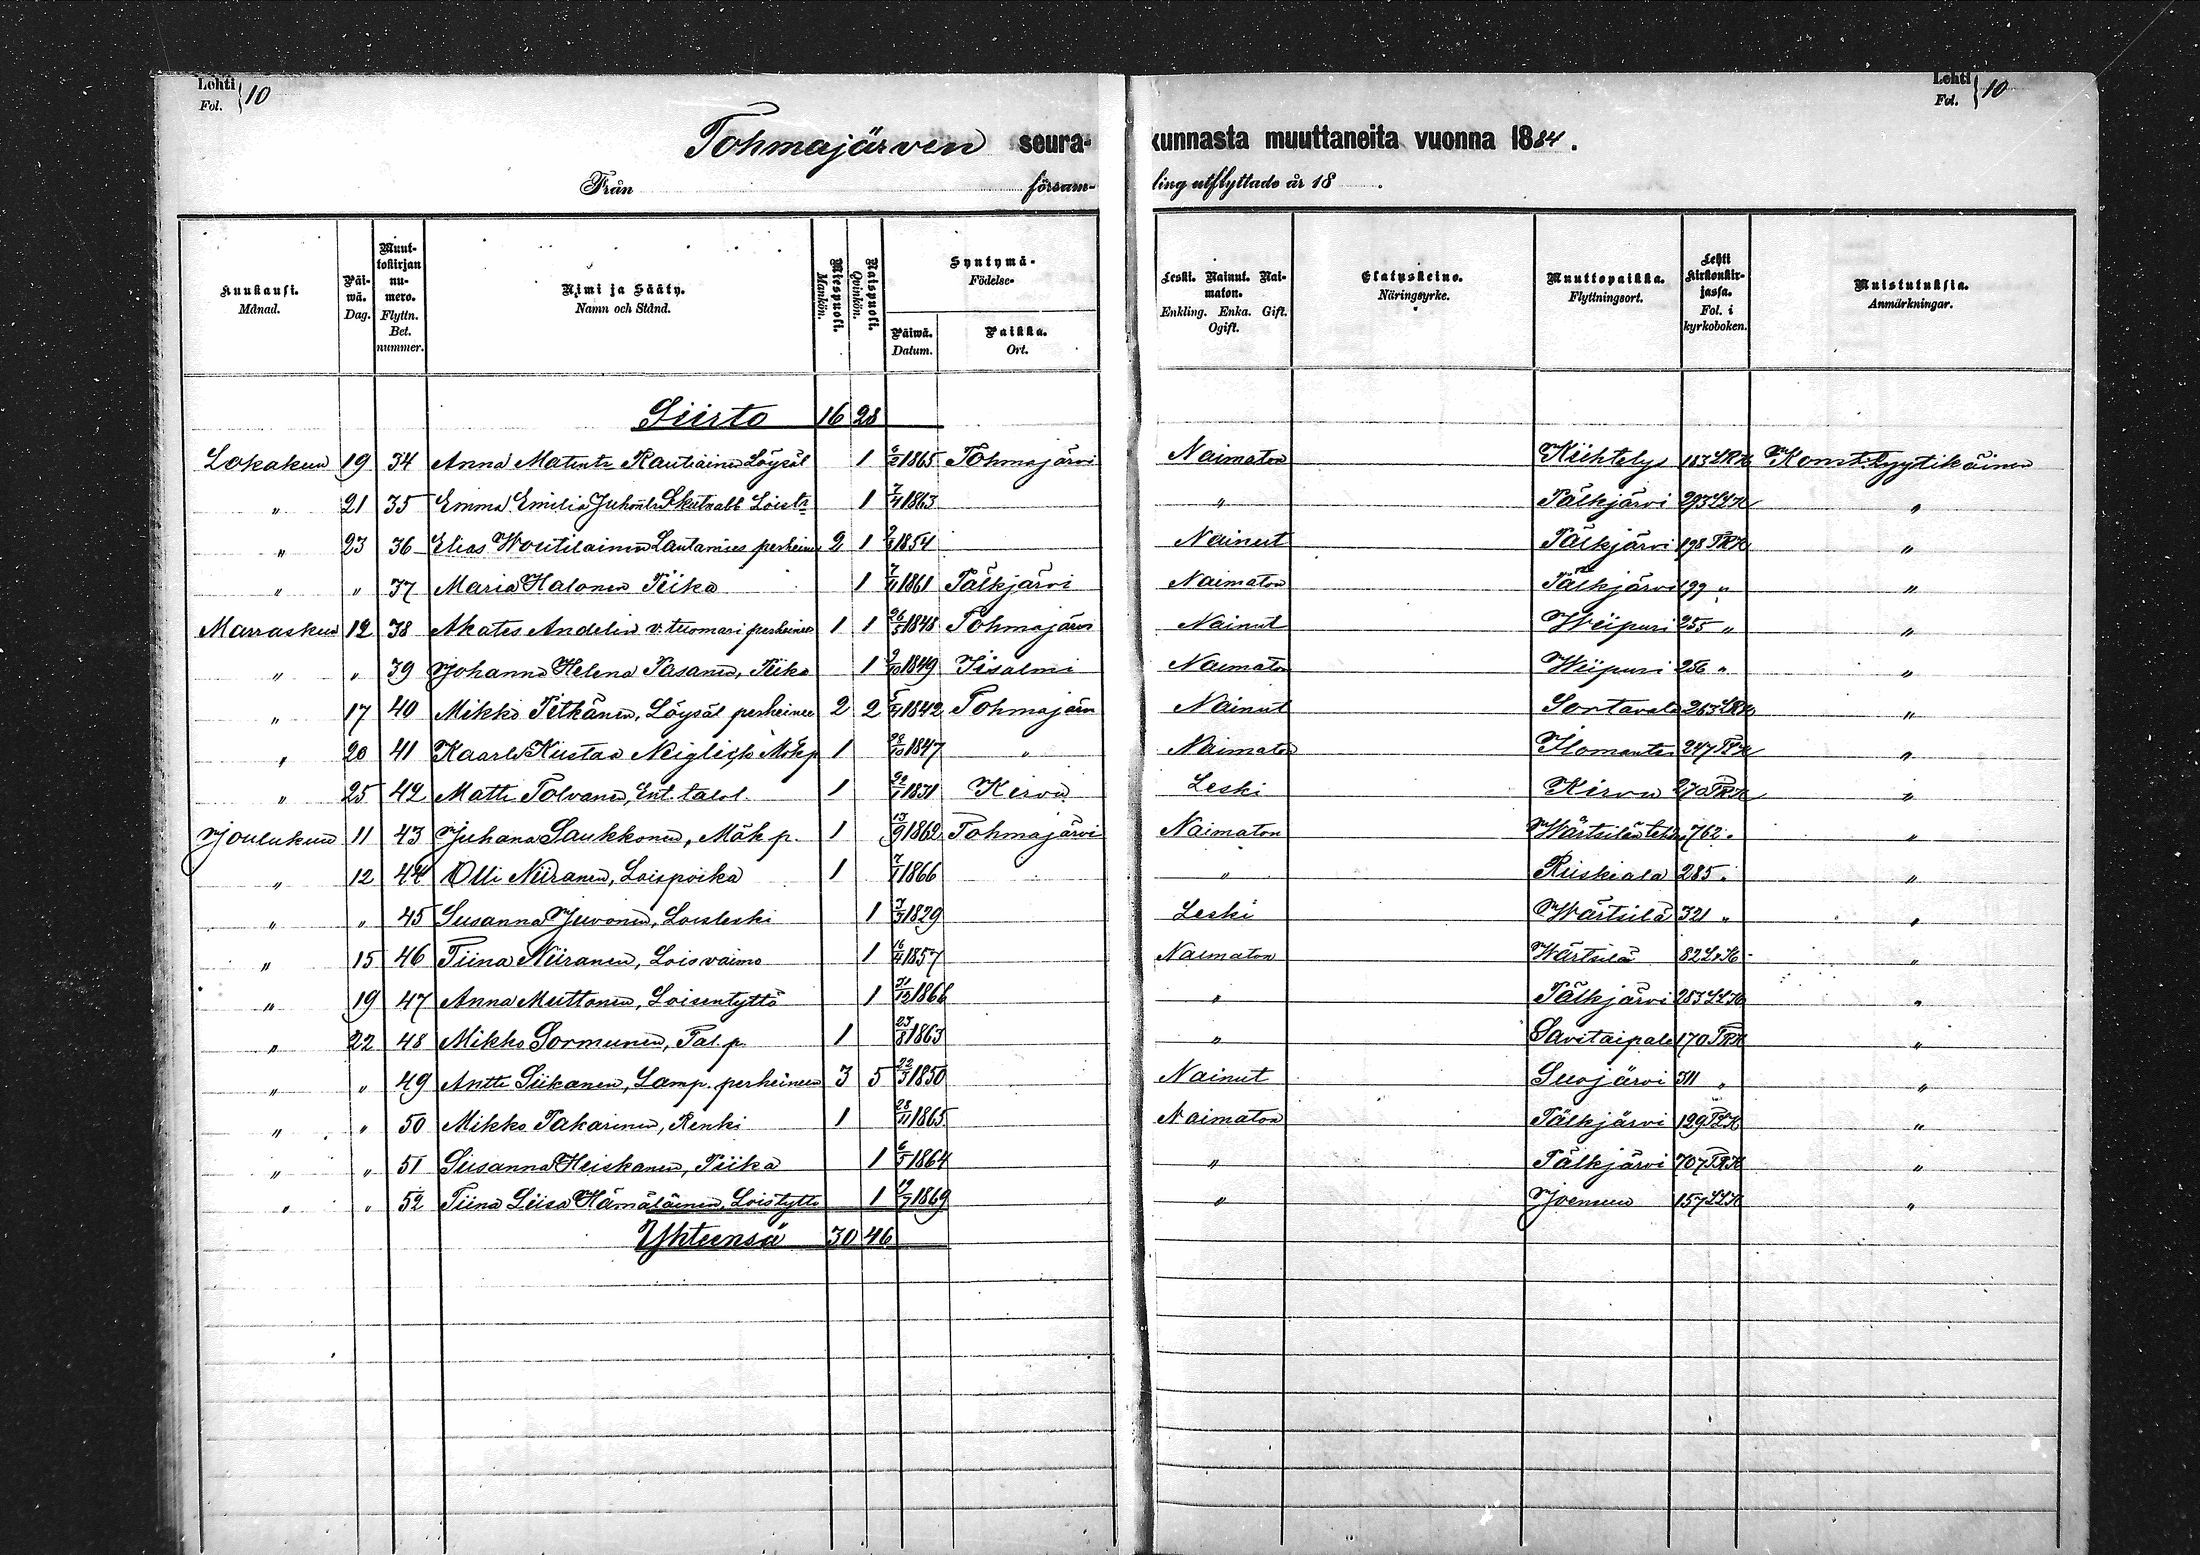 Lehti Fol. } 10
Lehti Fol. } 10
Tohmajärven seurakunnasta muuttaneita vuonna 1884.
Från församling utflyttade år 18 .
Kuukausi. Månad. | Päiwä. Dag. | Muuttokirjan numero. Flyttn. Bet. nummer. | Nimi ja Sääty. Namn och Stånd. | Miespuoli. Mankön. | Naispuoli. Qvinkön. | Syntymä- Födelse- Päiwä. Datum. | Paikka. Ort. | Leski. Nainut. Naimaton. Enkling. Enka. Gift. Ogift. | Elatuskeino. Näringsyrke. | Muuttopaikka. Flyttningsort. | Lehti Kirkonkirjassa. Fol. i kyrkoboken. | Muistutuksia. Anmärkningar.
Siirto 16 28
Lokakuu 19 34 Anna Matintr Rautiainen Löysäl 1 1865 Tohmajärvi Naimaton Kiihtelys 183 LRK Komt. Lyytikäinen
" 21 35 Emma Emilia Juhontr Skutnabb Loistr 1 7/4 1863 " Pälkjärvi 293 LLK "
" 23 36 Elias Woutilainen Lautamies perheineen 2 1 1854 Nainut Pälkjärvi 198 TRK "
" " 37 Maria Halonen Piika 1 1861 Pälkjärvi Naimaton Pälkjärvi 199 " "
Marraskuu 12 38 Akates Andelin v. tuomari perheineen 1 1 26/5 1848 Tohmajärvi Nainut Wiipuri 255 " "
" " 39 Johanna Helena Pasanen, Piika 1 9/10 1849 Iisalmi Naimaton Wiipuri 256 " "
" 17 40 Mikko Pitkänen, Löysäl perheineen 2 2 1842 Tohmajärvi Nainut Sortavala 263 LRK "
" 20 41 Kaarlo Kustaa Neiglick Mökp 1 28/10 1847 " Naimaton Ilomantsi 247 TLK "
" 25 42 Matti Tolvanen, Ent. talol. 1 1831 Kirvu Leski Kirvu 270 TRK "
Joulukuu 11 43 Juhana Saukkonen, Mök p. 1 13/9 1862 Tohmajärvi Naimaton Wärtsilän tehdas 762 " "
" 12 44 Olli Niiranen, Loispoika 1 7/1 1866 " Ruskeala 285 " "
" " 45 Susanna Juvonen, Loisleski 1 3/3 1829 Leski Wärtsilä 321 " "
" 15 46 Tiina Niiranen, Loisvaimo 1 1857 Naimaton Wärtsilä 82 L.K "
" 19 47 Anna Muttonen, Loisentyttö 1 31/12 1866 " Pälkjärvi 283 LLK "
" 22 48 Mikko Sormunen, Tal. p. 1 23/8 1863 " Savitaipale 170 TRK "
" " 49 Antti Siikanen, Lamp. perheineen 3 5 22/3 1850 Nainut Suojärvi 311 " "
" " 50 Mikko Pakarinen, Renki 1 28/11 1865 Naimaton Pälkjärvi 129 TLK "
" " 51 Susanna Heiskanen, Piika 1 6/5 1864 " Pälkjärvi 707 TRK "
" " 52 Tiina Liisa Hämäläinen, Loistyttö 1 19/7 1869 " Joensuu 157 LLK "
Yhteensä 30 46